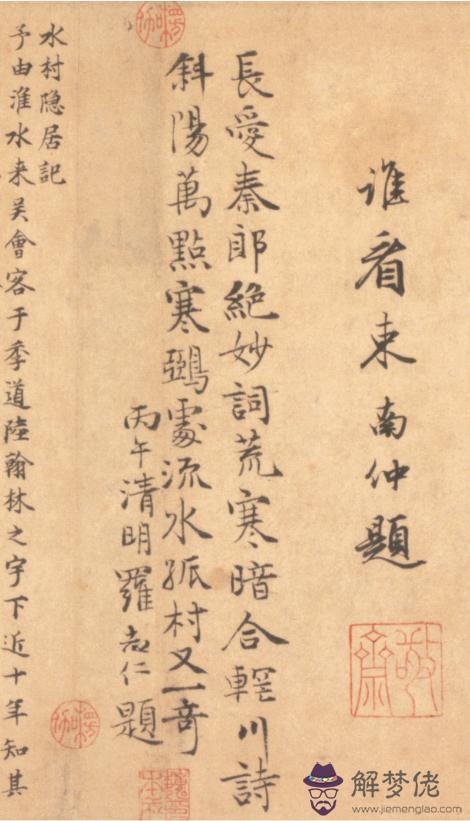 南仲題
長愛秦郎絶妙詞荒寒暗合輞川詩
斜陽萬點寒鵶處流水孤村又一奇
丙午清明羅志仁題
水村隐居記
予由淮水来吴會客于季道陸翰林之宇下近十年知其
解梦佬
www.jiemenglao.com